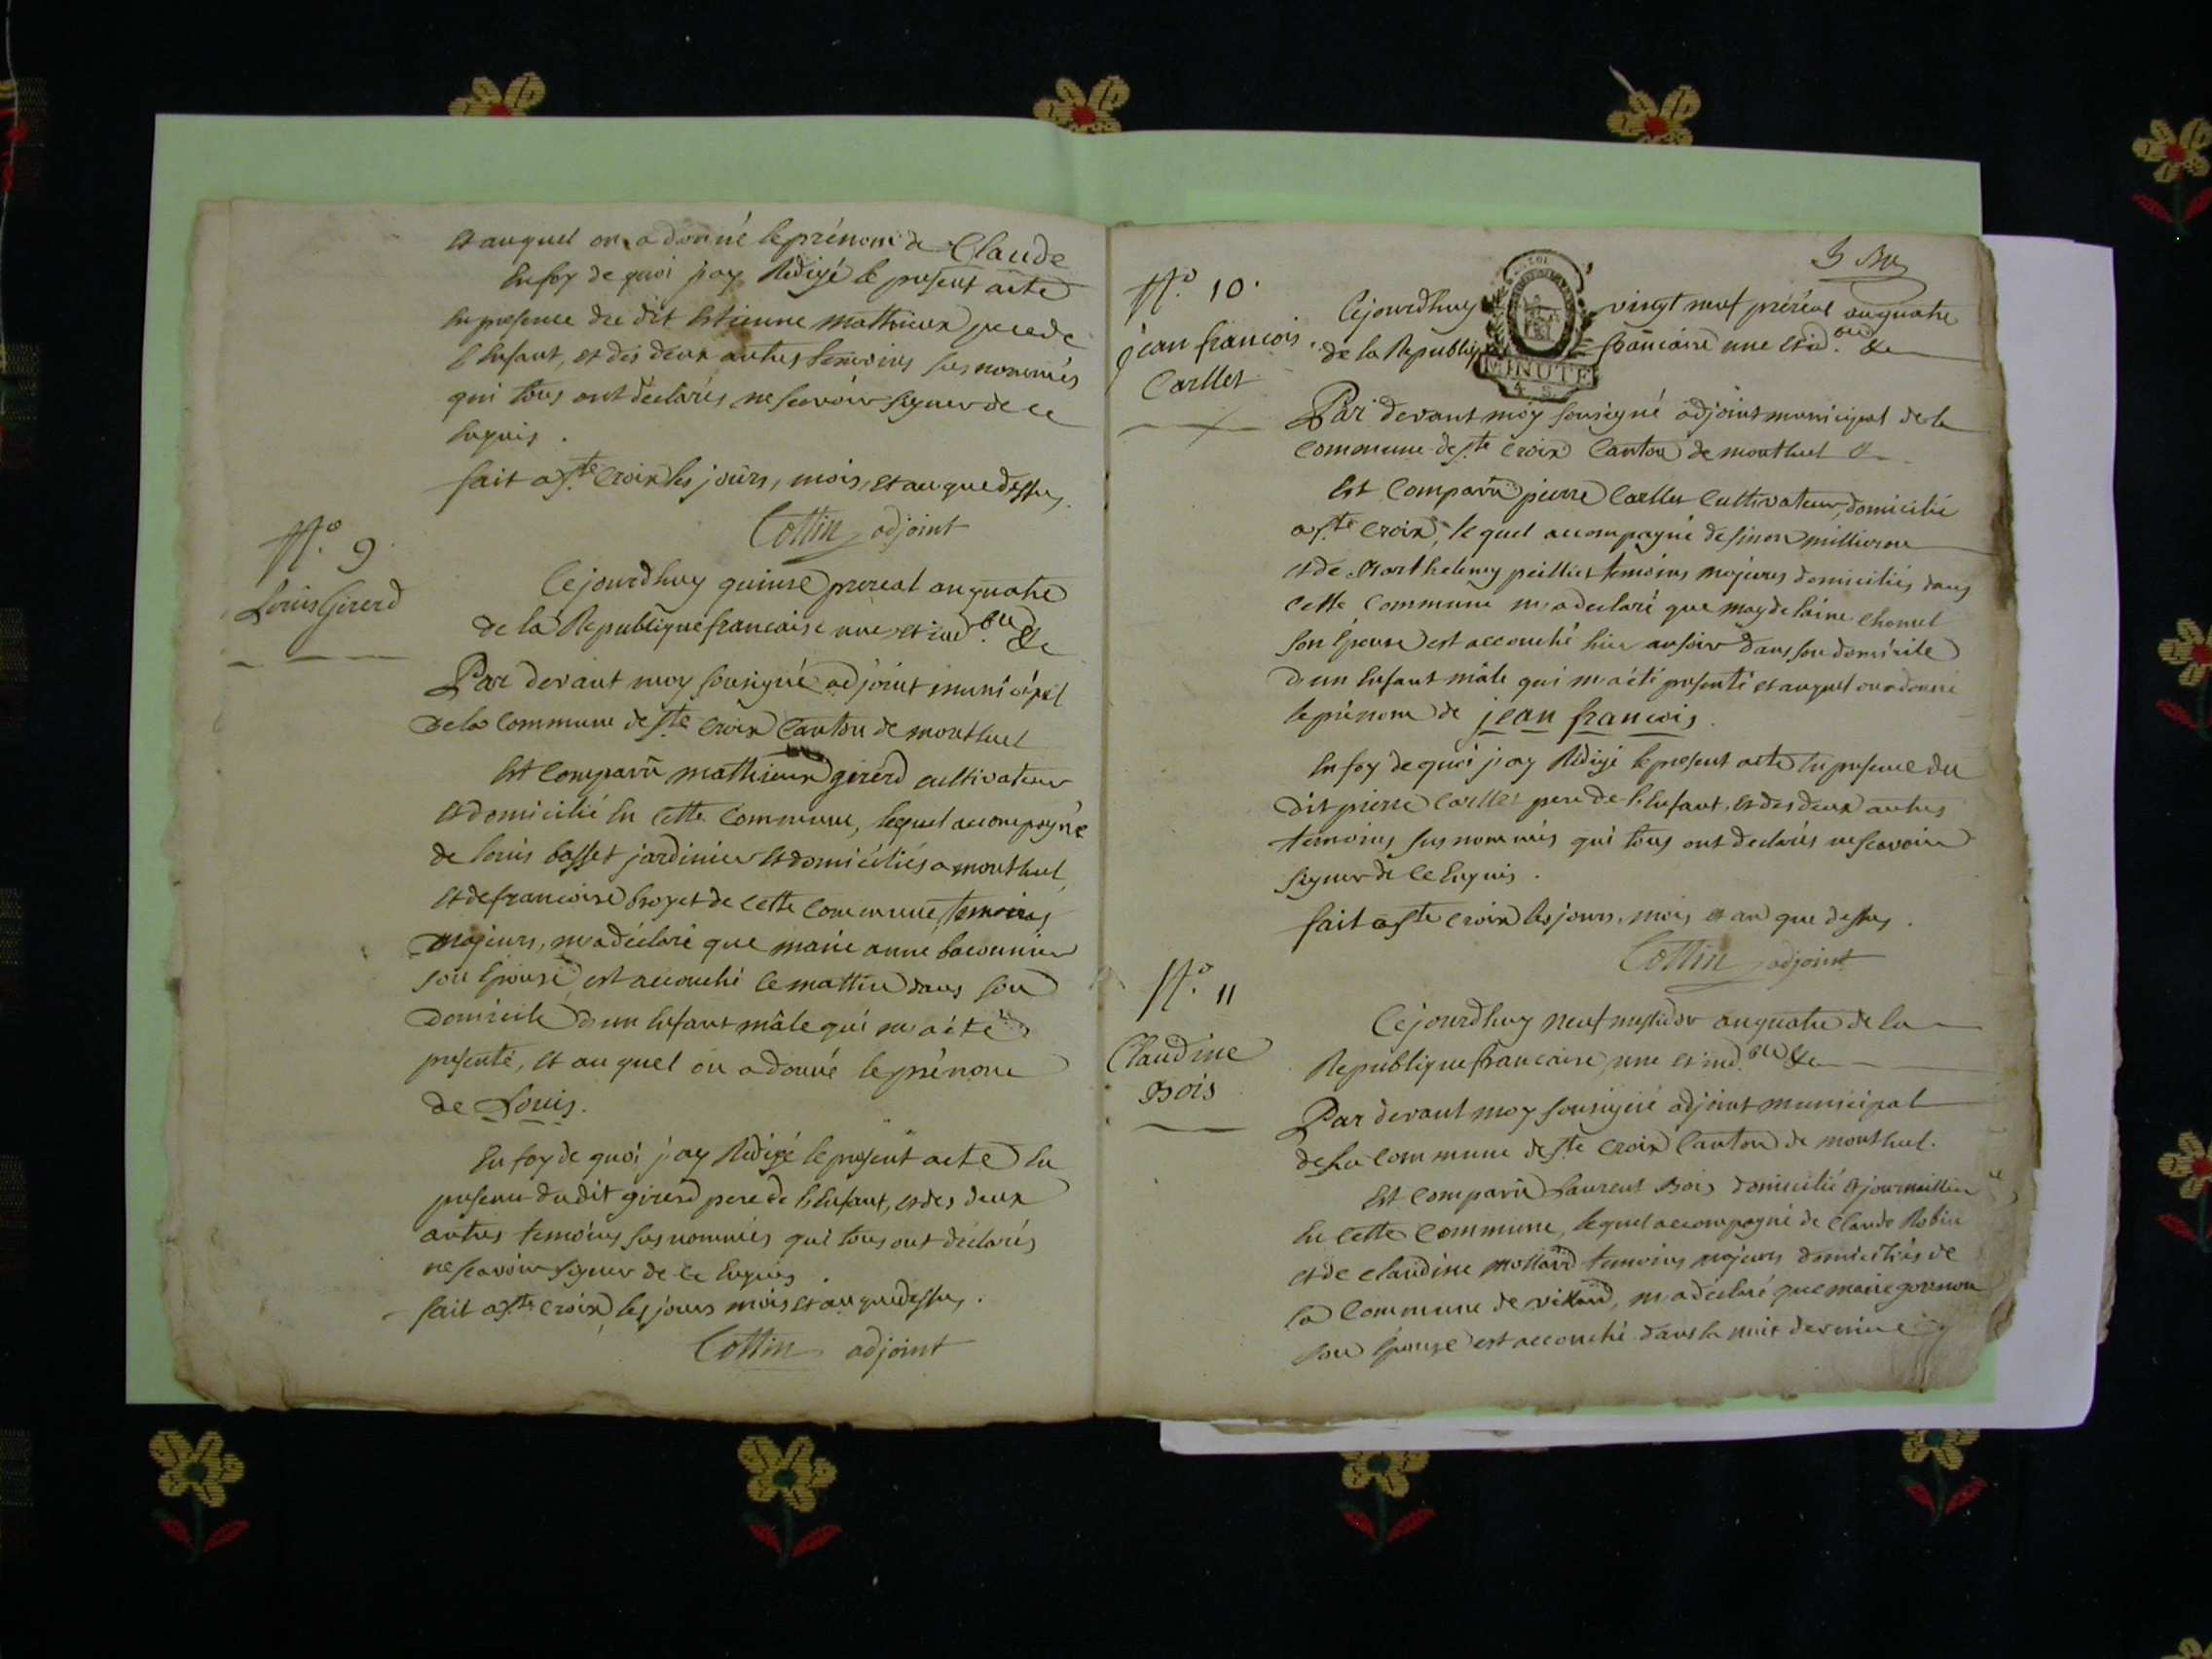 et auquel on a donné le prénom de Claude
En foy de quoi j'ay Rédigé le présent acte
en presence du dit Estienne Mathieux pere de
l'Enfant, et des deux autres temoins sus nommés
qui tous ont déclarés ne scavoir signer de ce
enquis.
fait a Ste Croix les jours, mois, et an que dessus.
Cottin adjoint
N.o 9.
Louis Girerd
Cejourdhuy quinse prereal an quatre
de la Republique francaise une et ind.ble &c
Par devant moy sousigné adjoint municipal
de la Commune de Ste Croix Canton de montluel
Est comparû mathieux girerd cultivateur
et domicilié En cette Commune, lequel accompagné
de louis basset jardinier et domiciliés a montluel,
et de francoise broyet de cette Commune temoins
majeurs, m'a déclaré que marie anne baconnier
son Epouse est accouché ce mattin dans son
domicile d'un Enfant mâle qui m'a été
presenté, et au quel on a donné le prénom
de Louis.
En foy de quoi j'ay Rédigé le présent acte En
presence du dit girerd pere de l'Enfant, et des deux
autres temoins sus nommés qui tous ont déclarés
ne scavoir signer de ce Enquis.
fait a Ste Croix les jours mois et an que dessus.
Cottin adjoint
N.o 10.
jean francois
Carllet
Cejourdhuy vingt neuf préreal an quatre
de la Republique francaise une et ind.ble &c
MINUTE
4 S.
Par devant moy sousigné adjoint municipal de la
Commune de Ste Croix Canton de montluel &c
Est Comparû pierre Carllet Cultivateur, domicilié
a Ste Croix, lequel accompagné de simon millieron
et de Barthelemy peillier temoins majeurs domiciliés dans
cette Commune m'a declaré que magdelaine chomel
son Epouse est accouché hier au soir dans son domicile
d'un Enfant mâle qui m'a été presenté et auquel on a donné
le prénom de jean francois.
En foy de quoi j'ay Rédigé le present acte En presence du
dit pierre Carllet pere de l'Enfant, et des deux autres
temoins sus nommés qui tous ont declarés ne scavoir
signer de ce Enquis.
fait a Ste Croix les jours, mois et an que dessus.
Cottin adjoint
N.o 11
Claudine
Bois
Cejourdhuy neuf messidor an quatre de la
Republique francaise, une et ind.ble &c
Par devant moy sousigné adjoint municipal
de la Commune de Ste Croix Canton de montluel.
Est comparû Laurent Bois domicilié et journaillier
En cette Commune, lequel accompagné de Claude Robin
et de claudine mollard temoins majeurs domiciliés de
la Commune de, m'a declaré que marie
son Epouse est accouché dans la nuit derniere